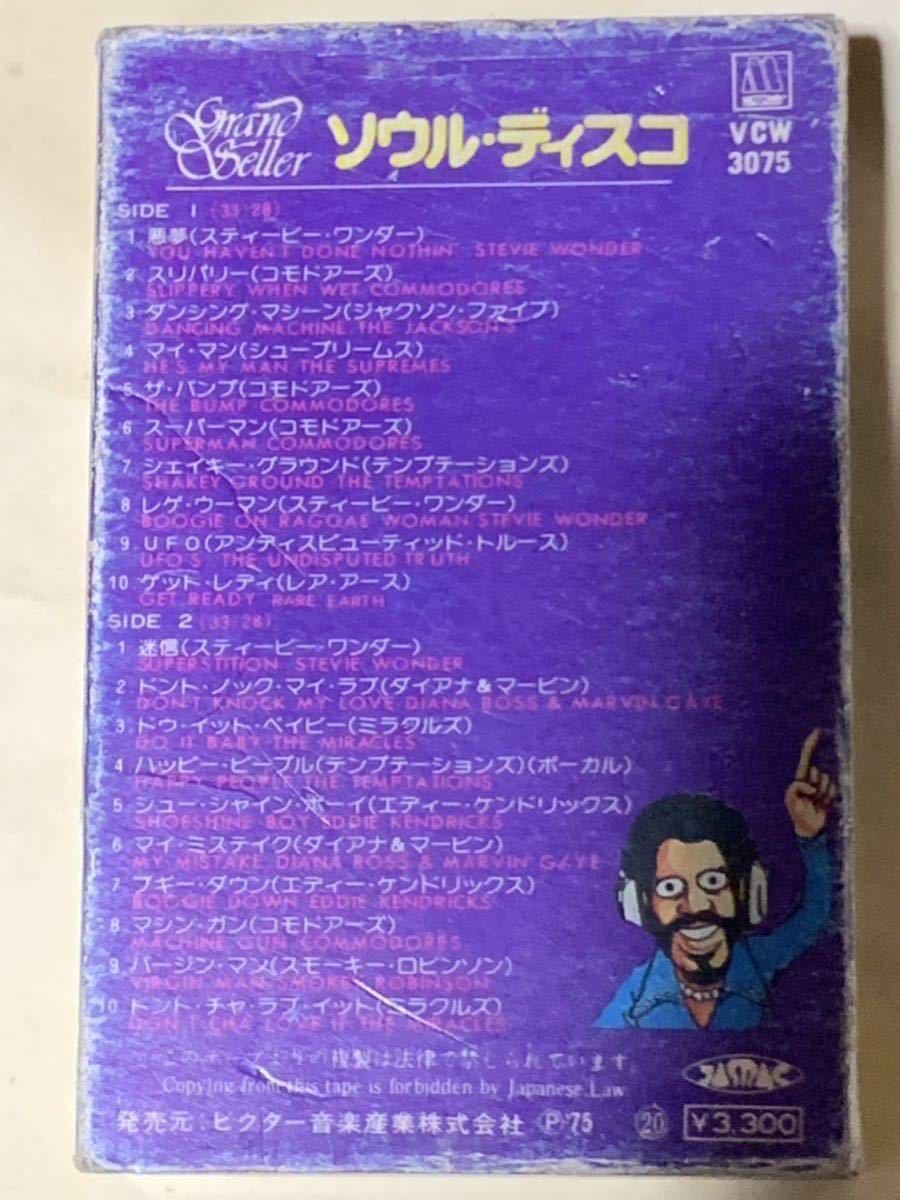 Grand
Seller
ソウル・ディスコ
VCW
3075
SIDE 1 (33'28)
1 悪夢(スティービー・ワンダー)
YOU HAVEN'T DONE NOTHIN' STEVIE WONDER
2 スリパリー(コモドアーズ)
SLIPPERY WHEN WET COMMODORES
3 ダンシング・マシーン(ジャクソン・ファイブ)
DANCING MACHINE THE JACKSON 5
4 マイ・マン(シュープリームス)
HE'S MY MAN THE SUPREMES
5 ザ・バンプ(コモドアーズ)
THE BUMP COMMODORES
6 スーパーマン(コモドアーズ)
SUPERMAN COMMODORES
7 シェイキー・グラウンド(テンプテーションズ)
SHAKEY GROUND THE TEMPTATIONS
8 レゲ・ウーマン(スティービー・ワンダー)
BOOGIE ON RAGGAE WOMAN STEVIE WONDER
9 UFO(アンディスピューティッド・トルース)
UFO'S THE UNDISPUTED TRUTH
10 ゲッド・レディ(レア・アース)
GET READY RARE EARTH
SIDE 2 (33'28)
1 迷信(スティービー・ワンダー)
SUPERSTITION STEVIE WONDER
2 ドント・ノック・マイ・ラブ(ダイアナ&マービン)
DON'T KNOCK MY LOVE DIANA ROSS & MARVIN GAYE
3 ドゥ・イット・ベイビー(ミラクルズ)
DO IT BABY THE MIRACLES
4 ハッピー・ピープル(テンプテーションズ)(ボーカル)
HAPPY PEOPLE THE TEMPTATIONS
5 シュー・シャイン・ボーイ(エディー・ケンドリックス)
SHOESHINE BOY EDDIE KENDRICKS
6 マイ・ミステイク(ダイアナ&マービン)
MY MISTAKE DIANA ROSS & MARVIN GAYE
7 ブギー・ダウン(エディー・ケンドリックス)
BOOGIE DOWN EDDIE KENDRICKS
8 マシン・ガン(コモドアーズ)
MACHINE GUN COMMODORES
9 バージン・マン(スモーキー・ロビンソン)
VIRGIN MAN SMOKEY ROBINSON
10 ドント・チャ・ラブ・イット(ミラクルズ)
DON'T CHA LOVE IT THE MIRACLES
このテープよりの複製は法律で禁じられています。
Copying from this tape is forbidden by Japanese Law
JASRAC
発売元：ビクター音楽産業株式会社 Ⓟ75 ⑳ ¥3,300